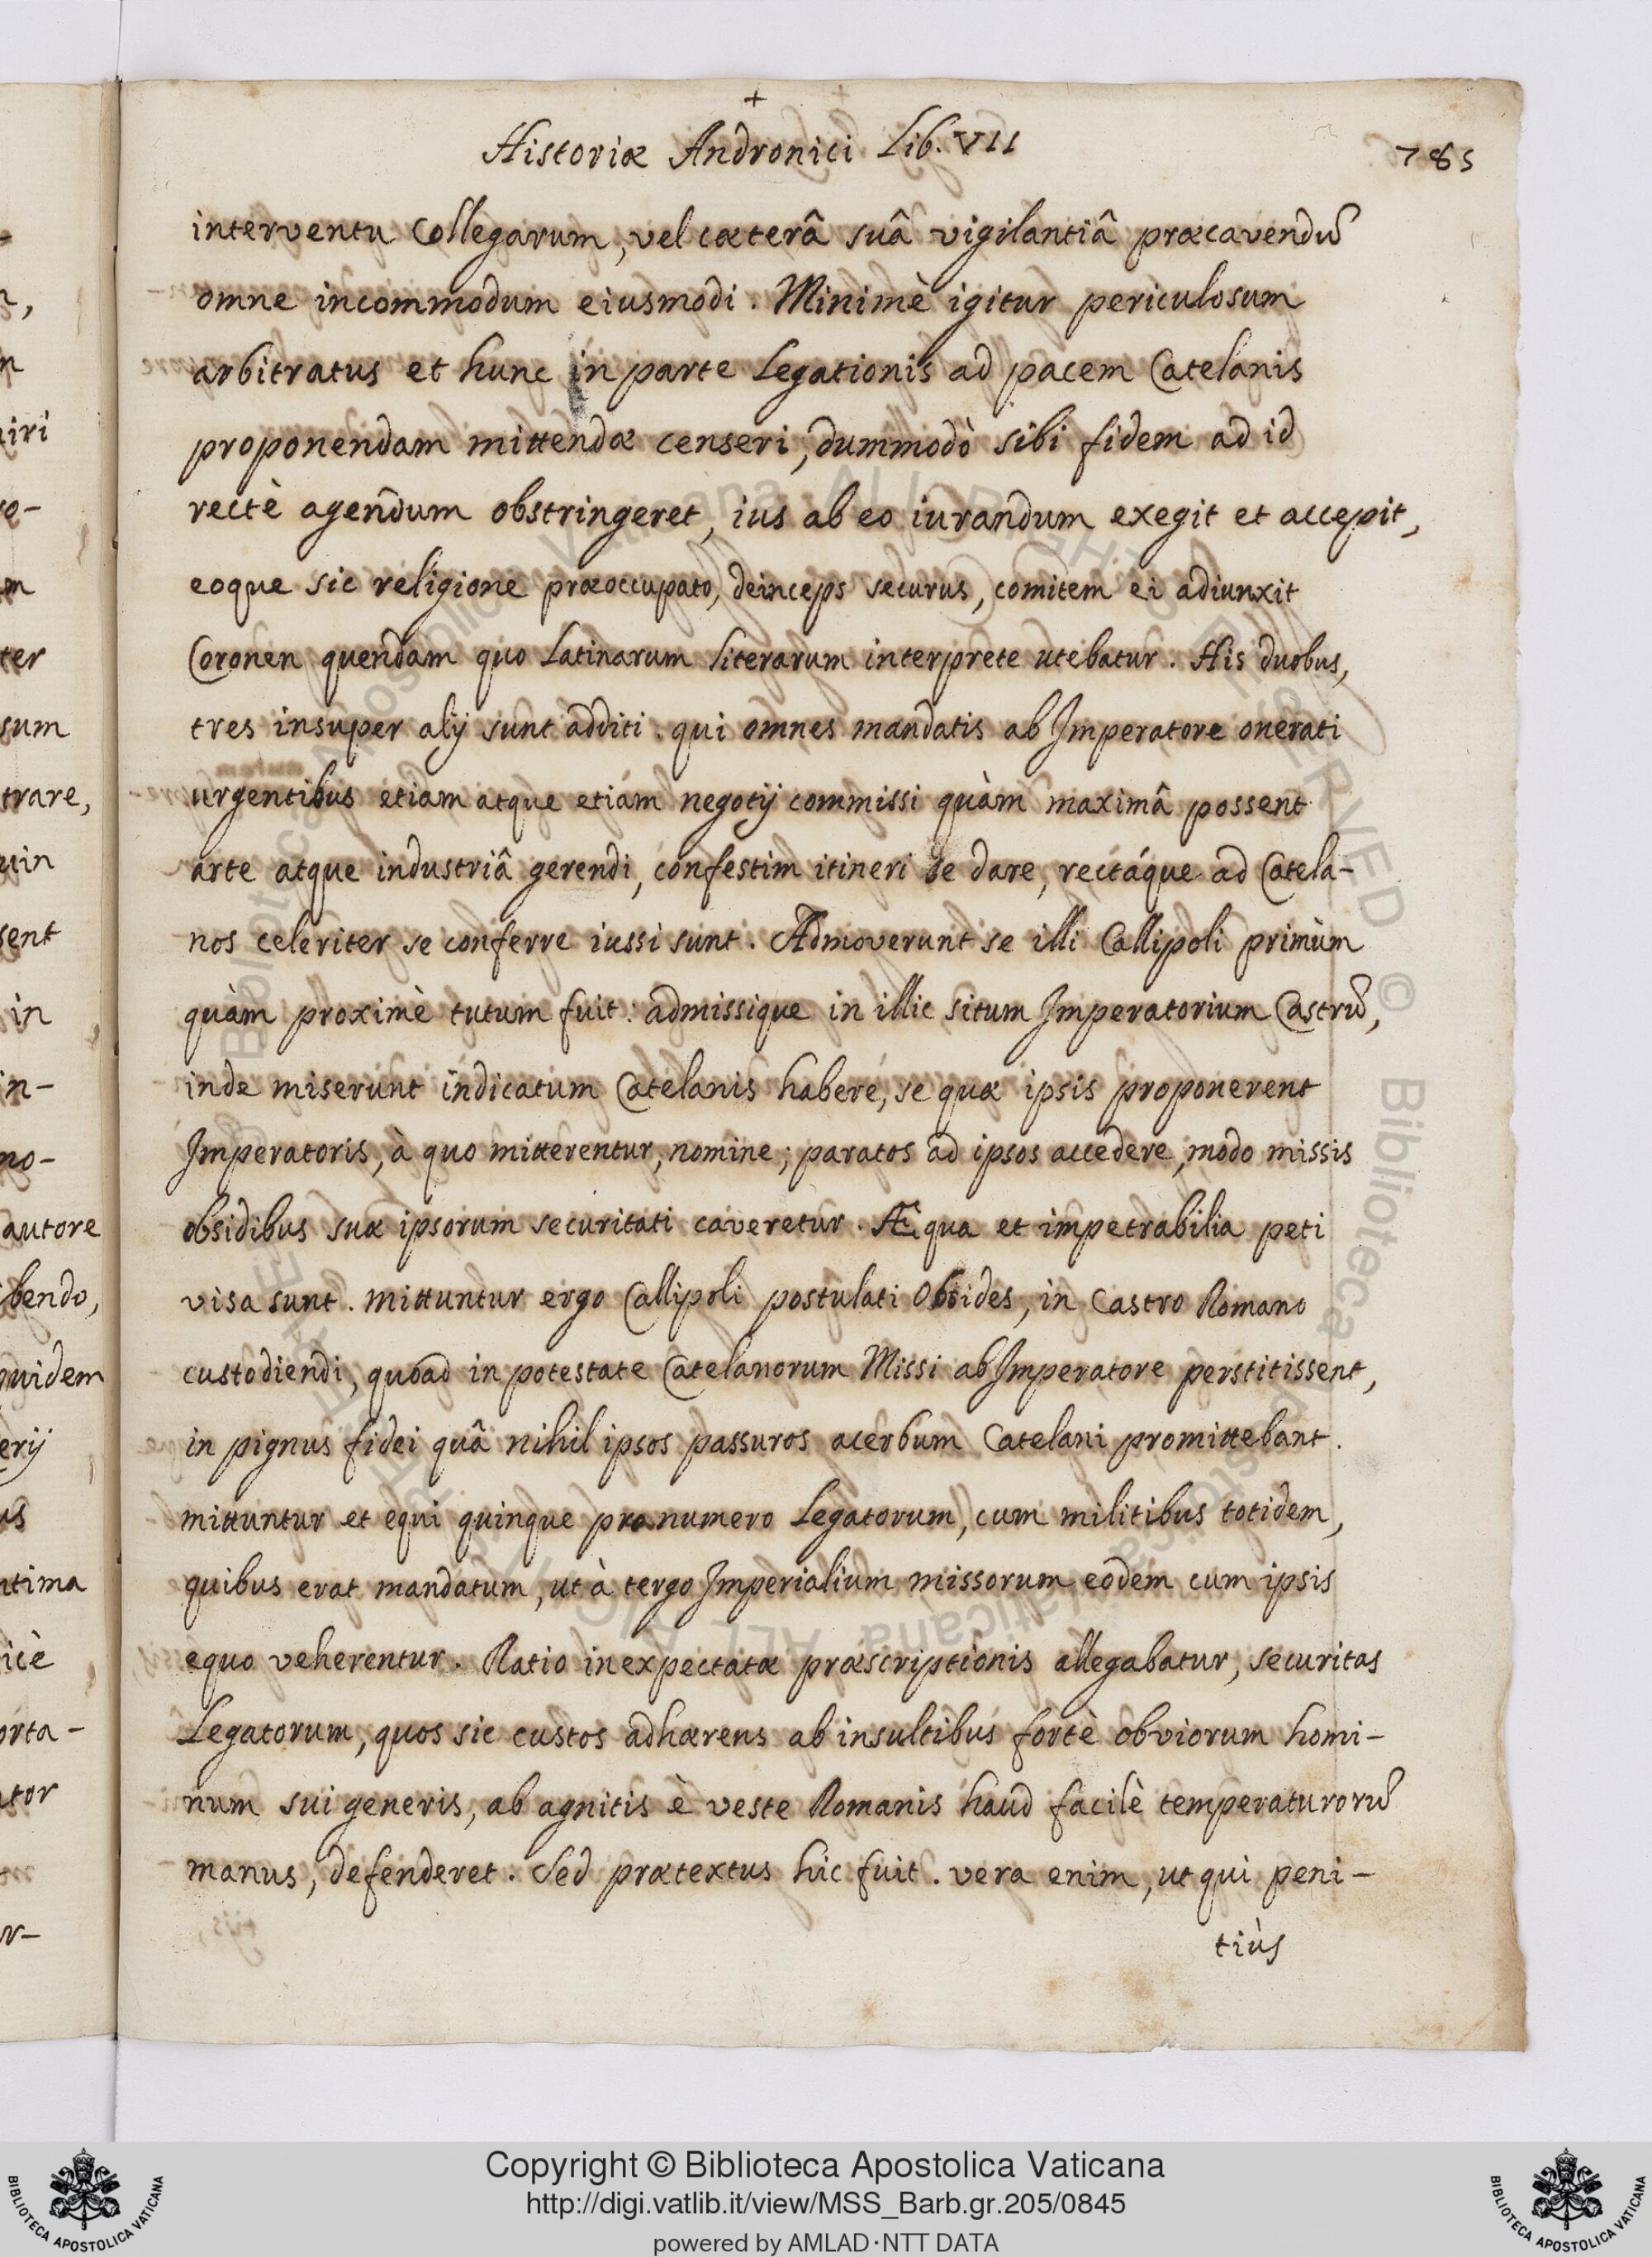 +
Historiæ Andronici Lib. VII
785
interventu Collegarum, vel cæterâ suâ vigilantiâ præcavendũ
omne incommodum eiusmodi. Minimè igitur periculosum
arbitratus et hunc in parte Legationis ad pacem Catelanis
proponendam mittendæ censeri, dummodò sibi fidem ad id
rectè agendum obstringeret, ius ab eo iurandum exegit et accepit,
eoque sic religione præoccupato, deinceps securus, comitem ei adiunxit
Coronen quendam quo Latinarum literarum interprete utebatur. His duobus,
tres insuper alij sunt additi. qui omnes mandatis ab Imperatore onerati
urgentibus etiam atque etiam negotij commissi quàm maximâ possent
arte atque industriâ gerendi, confestim itineri se dare, rectáque ad Catela-
nos celeriter se conferre iussi sunt. Admoverunt se illi Callipoli primùm
quàm proximè tutum fuit: admissique in illic situm Imperatorium Castrũ,
inde miserunt indicatum Catelanis habere, se quæ ipsis proponerent
Imperatoris, à quo mitterentur, nomine; paratos ad ipsos accedere, modo missis
obsidibus suæ ipsorum securitati caveretur. Æqua et impetrabilia peti
visa sunt. mittuntur ergo Callipoli postulati Obsides, in Castro Romano
custodiendi, quoad in potestate Catelanorum Missi ab Imperatore perstitissent,
in pignus fidei quâ nihil ipsos passuros acerbum Catelani promittebant.
mittuntur et equi quinque pro numero Legatorum, cum militibus totidem,
quibus erat mandatum, ut à tergo Imperialium missorum eodem cum ipsis
equo veherentur. Ratio inexpectatæ præscriptionis allegabatur, securitas
Legatorum, quos sic custos adhærens ab insultibus fortè obviorum homi-
num sui generis, ab agnitis è veste Romanis haud facilè temperaturorũ
manus, defenderet. Sed prætextus hic fuit. vera enim, ut qui peni-
tiùs
Copyright © Biblioteca Apostolica Vaticana
http://digi.vatlib.it/view/MSS_Barb.gr.205/0845
powered by AMLAD·NTT DATA
BIBLIOTECA APOSTOLICA VATICANA
BIBLIOTECA APOSTOLICA VATICANA